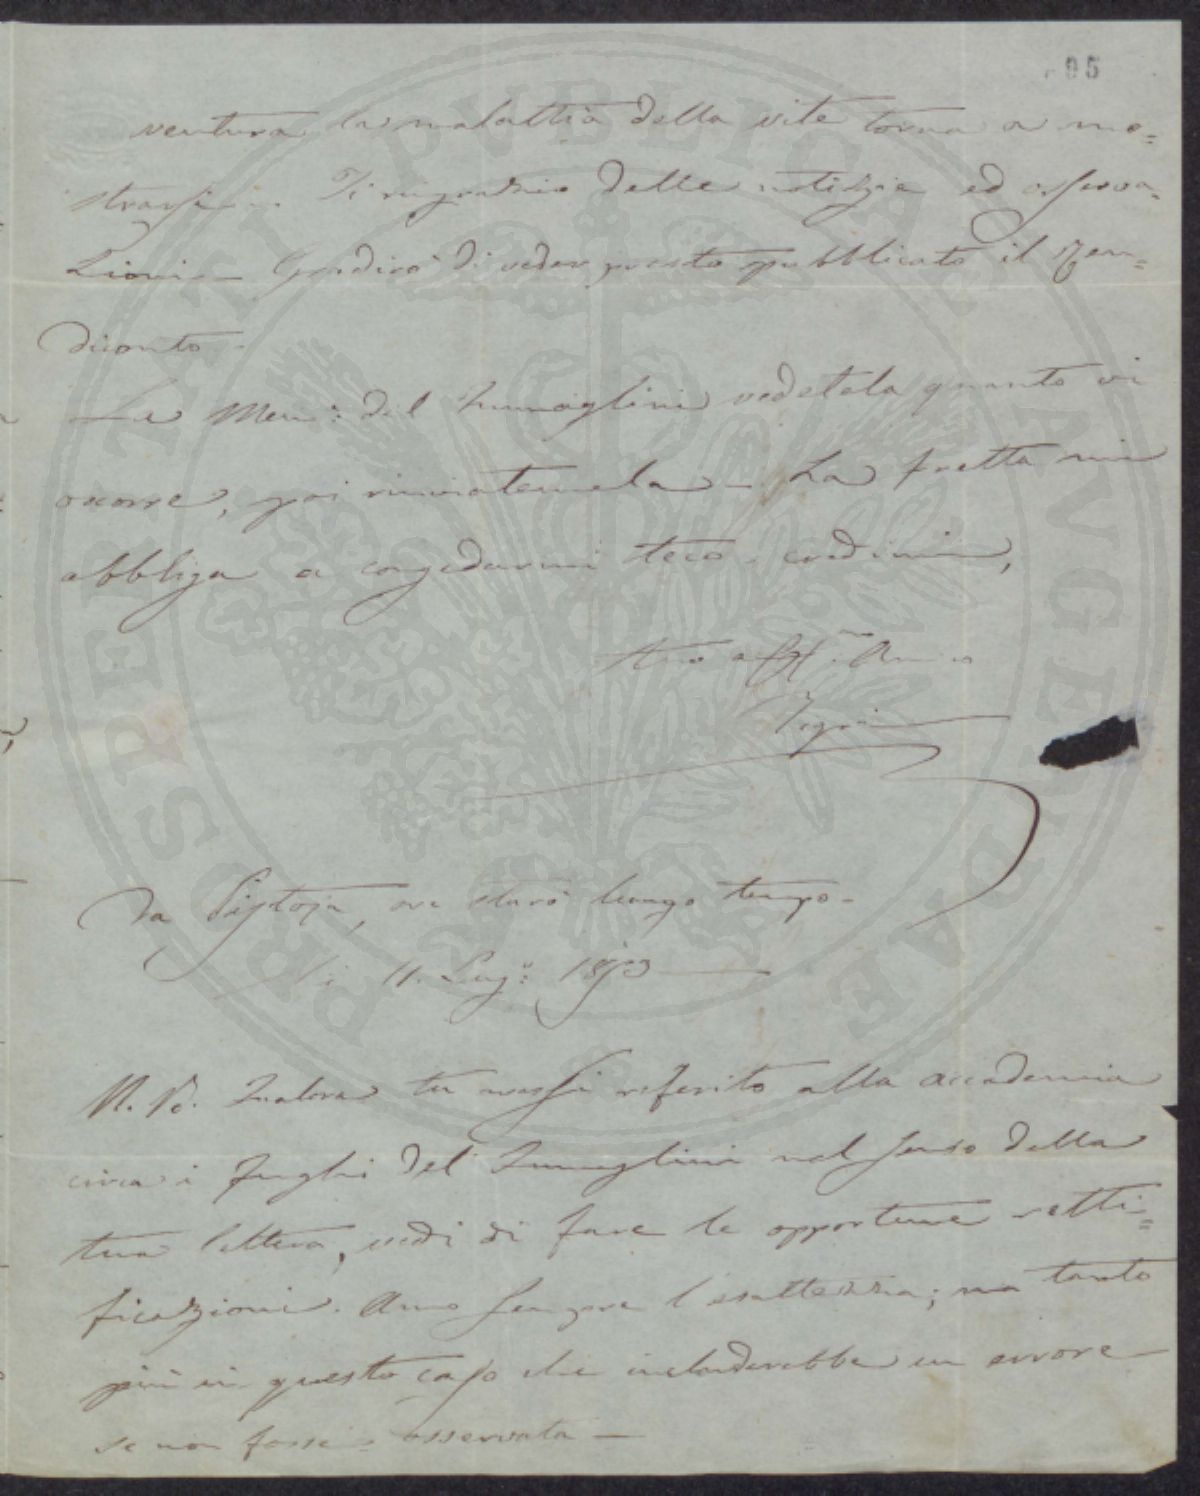 95
ventura la malattia della vite torna a mo=
strarsi — Ti ringrazio delle notizie ed osserva=
zioni — Gradirò di veder presto pubblicato il Ren=
diconto —
La Mem: del Fumaglini vedetela quanto vi
occorre, poi rinviatemela — La fretta mi
obbliga a congedarmi teco. credimi,
tuo aff. Amico
Da Pistoja, ove starò lungo tempo —
Li 11. Lug: 1853
N. B. Qualora tu avessi referito alla accademia
circa i funghi del Fumaglini nel senso della
tua lettera, vedi di fare le opportune retti=
ficazioni. Amo sempre l'esattezza; ma tanto
più in questo caso che includerebbe un errore
se non fosse osservata —
PROSPERITATI PVBLICAE AVGENDAE